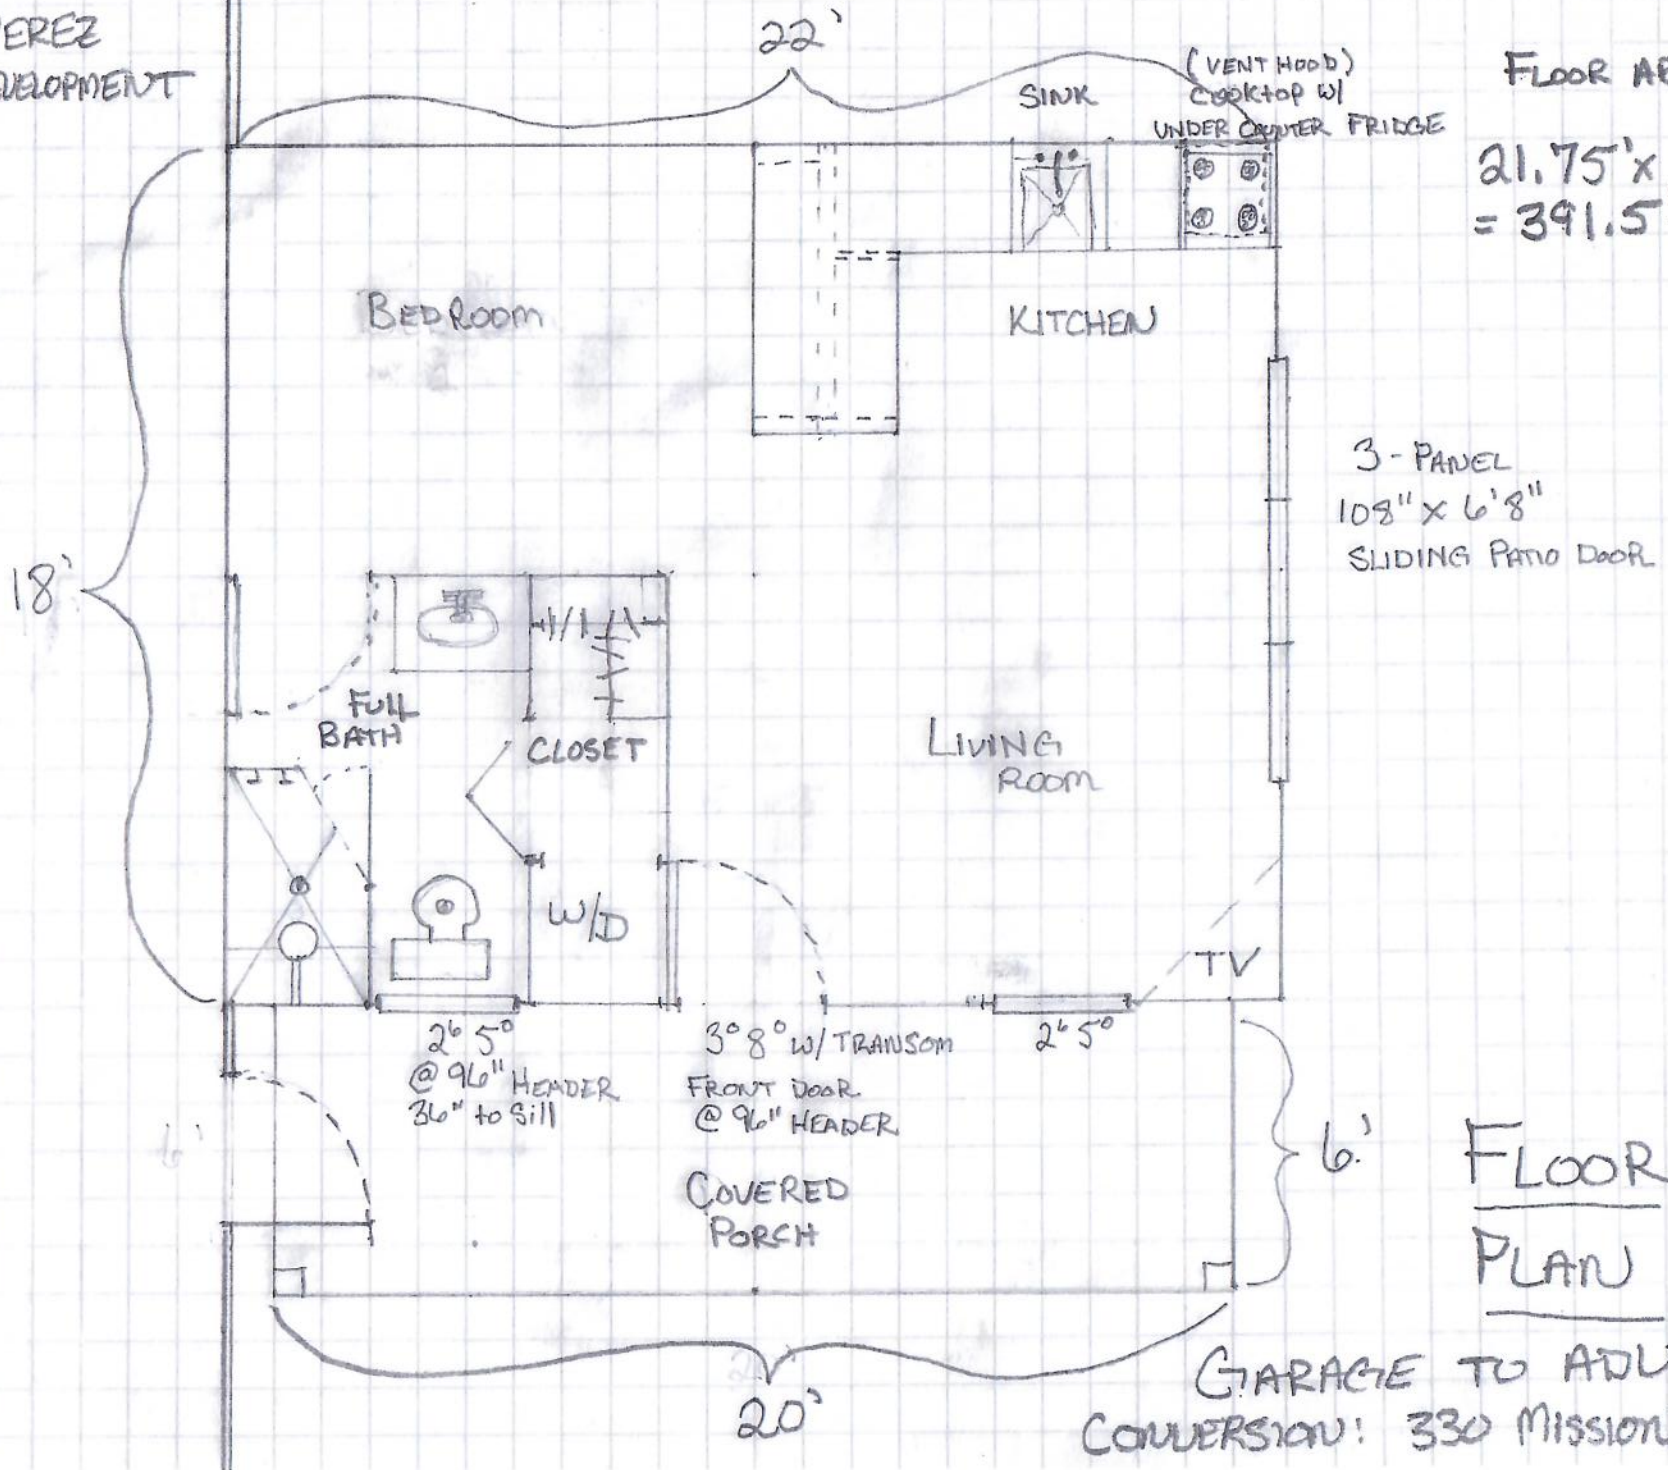 EREZ
VELOPMENT
22'
SINK
(VENT HOOD)
COOKTOP W/
UNDER COUNTER FRIDGE
FLOOR AR
21.75' x
= 391.5
BEDROOM
KITCHEN
3-PANEL
108" X 6'8"
SLIDING PATIO DOOR
18'
FULL
BATH
CLOSET
LIVING
ROOM
W/D
TV
2⁶ 5⁰
@ 96" HEADER
36" to Sill
3⁰ 8⁰ W/ TRANSOM
FRONT DOOR
@ 96" HEADER
2⁶ 5⁰
6'
6'
COVERED
PORCH
FLOOR
PLAN
20'
GARAGE TO ADU
CONVERSION: 330 MISSION